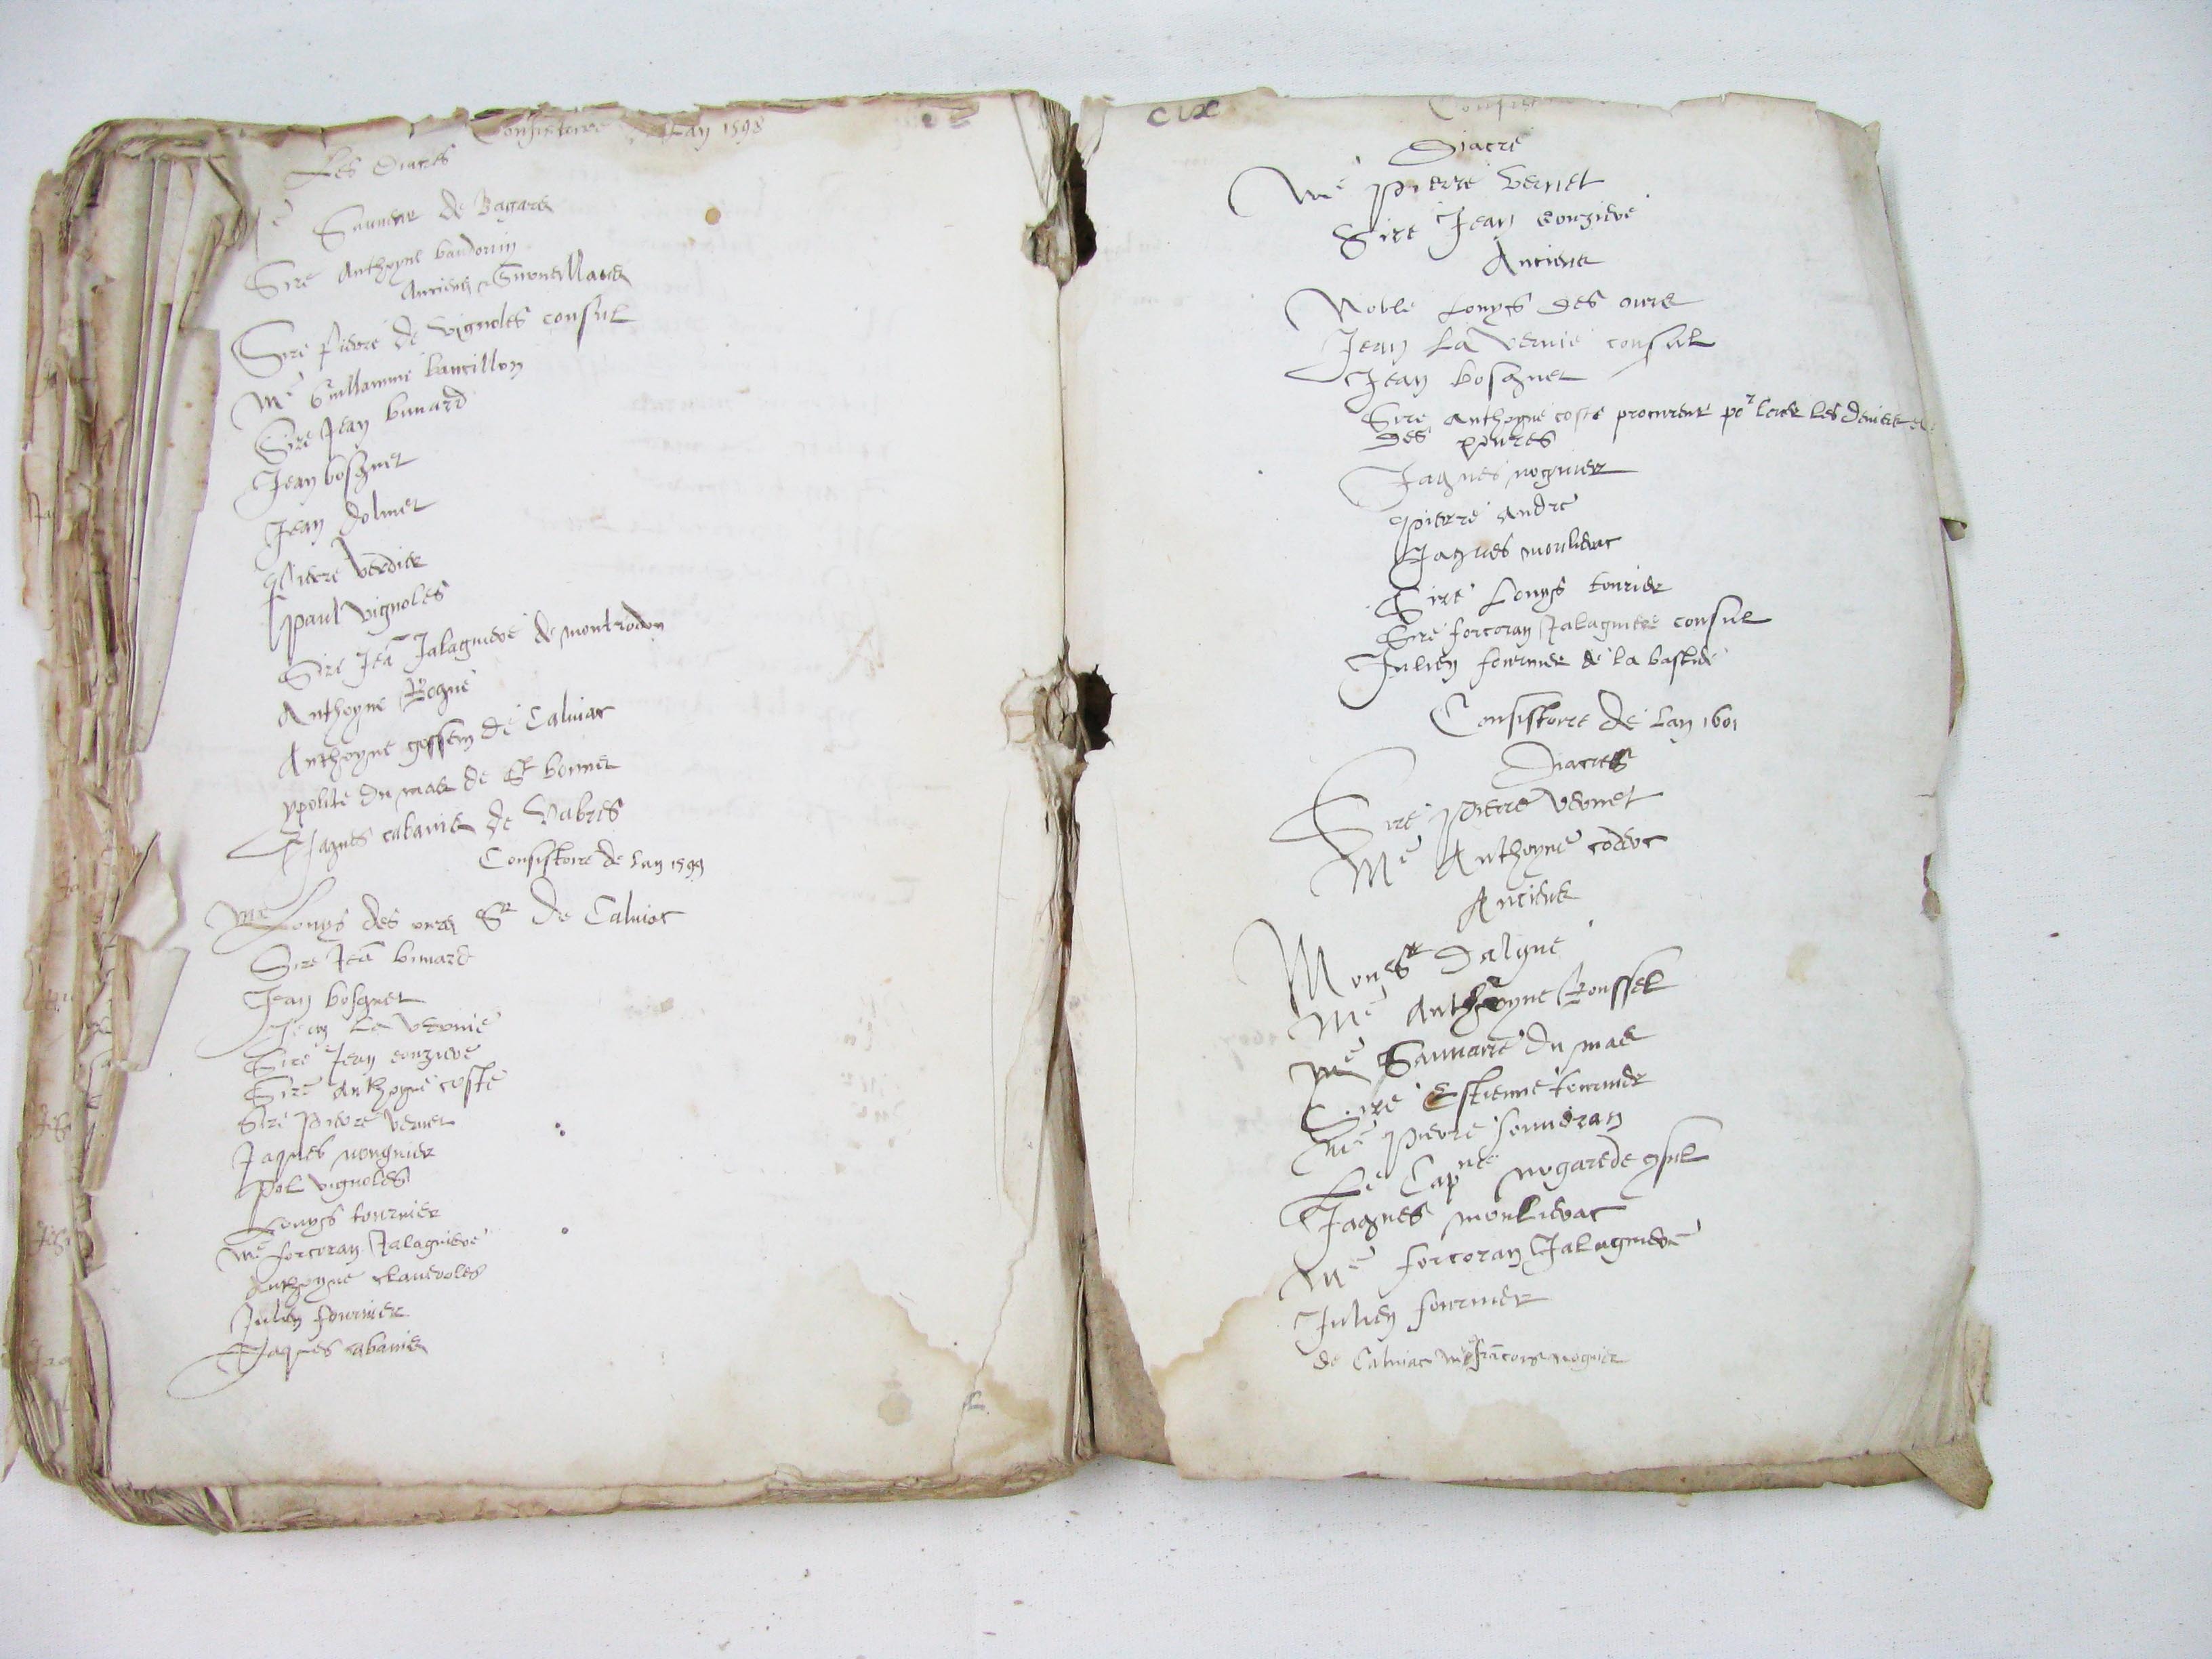 Consistoire Lan 1598
Les Diacres
Sauveur de Bagars
Sire Anthoyne baudouin
Anciens Surveillans
Sire Pierre de Vignoles consul
Me Guillaume bancillon
Sire Jean bimard
Jean bosquet
Jean dolmet
Pierre Verdier
paul vignoles
Sire Jeā Jalaguiere de montredon
Anthoyne Rogue
Anthoyne gossem de Calviac
ypolite du mas de St bonnet
Jaques cabanis de Vabres
Consistoire de Lan 1599
Me Louys des ours Sr de Calviac
Sire Jeā bimard
Jean bosquet
Jean La vernie
Sire Jean conziere
Sire Anthoyne coste
Sire Pierre Vernet
Jaques nouguier
Pol vignoles
Louys fournier
Me forcoran Jalaguiere
Anthoyne claveroles
Julien fournier
Jaques cabanis
CIX
Consist
Diacre
Me Pierre Vernet
Sire Jean conziere
Anciens
Noble Louys des ours
Jean La Vernie consul
Jean bosquet
Sire Anthoyne coste procureur por lever les deniers
des povres
Jaques noguier
Pierre Andre
Jaques moulierac
Sire Louys fournier
Sire forcoran Jalaguiere consul
Julien fournier de la bastide
Consistoire de Lan 1601
Diacres
Sire Pierre Vernet
Me Anthoyne coderc
Anciens
Monsr Daligne
Me Anthoyne Roussel
Me Sauvaire du mas
Sire Estienne fournier
Me Pierre souveran
Le Capne nogarede 9sul
Jaques moulierac
Me forcoran Jalaguiere
Julien fournier
de Calviac Me frācois noguier